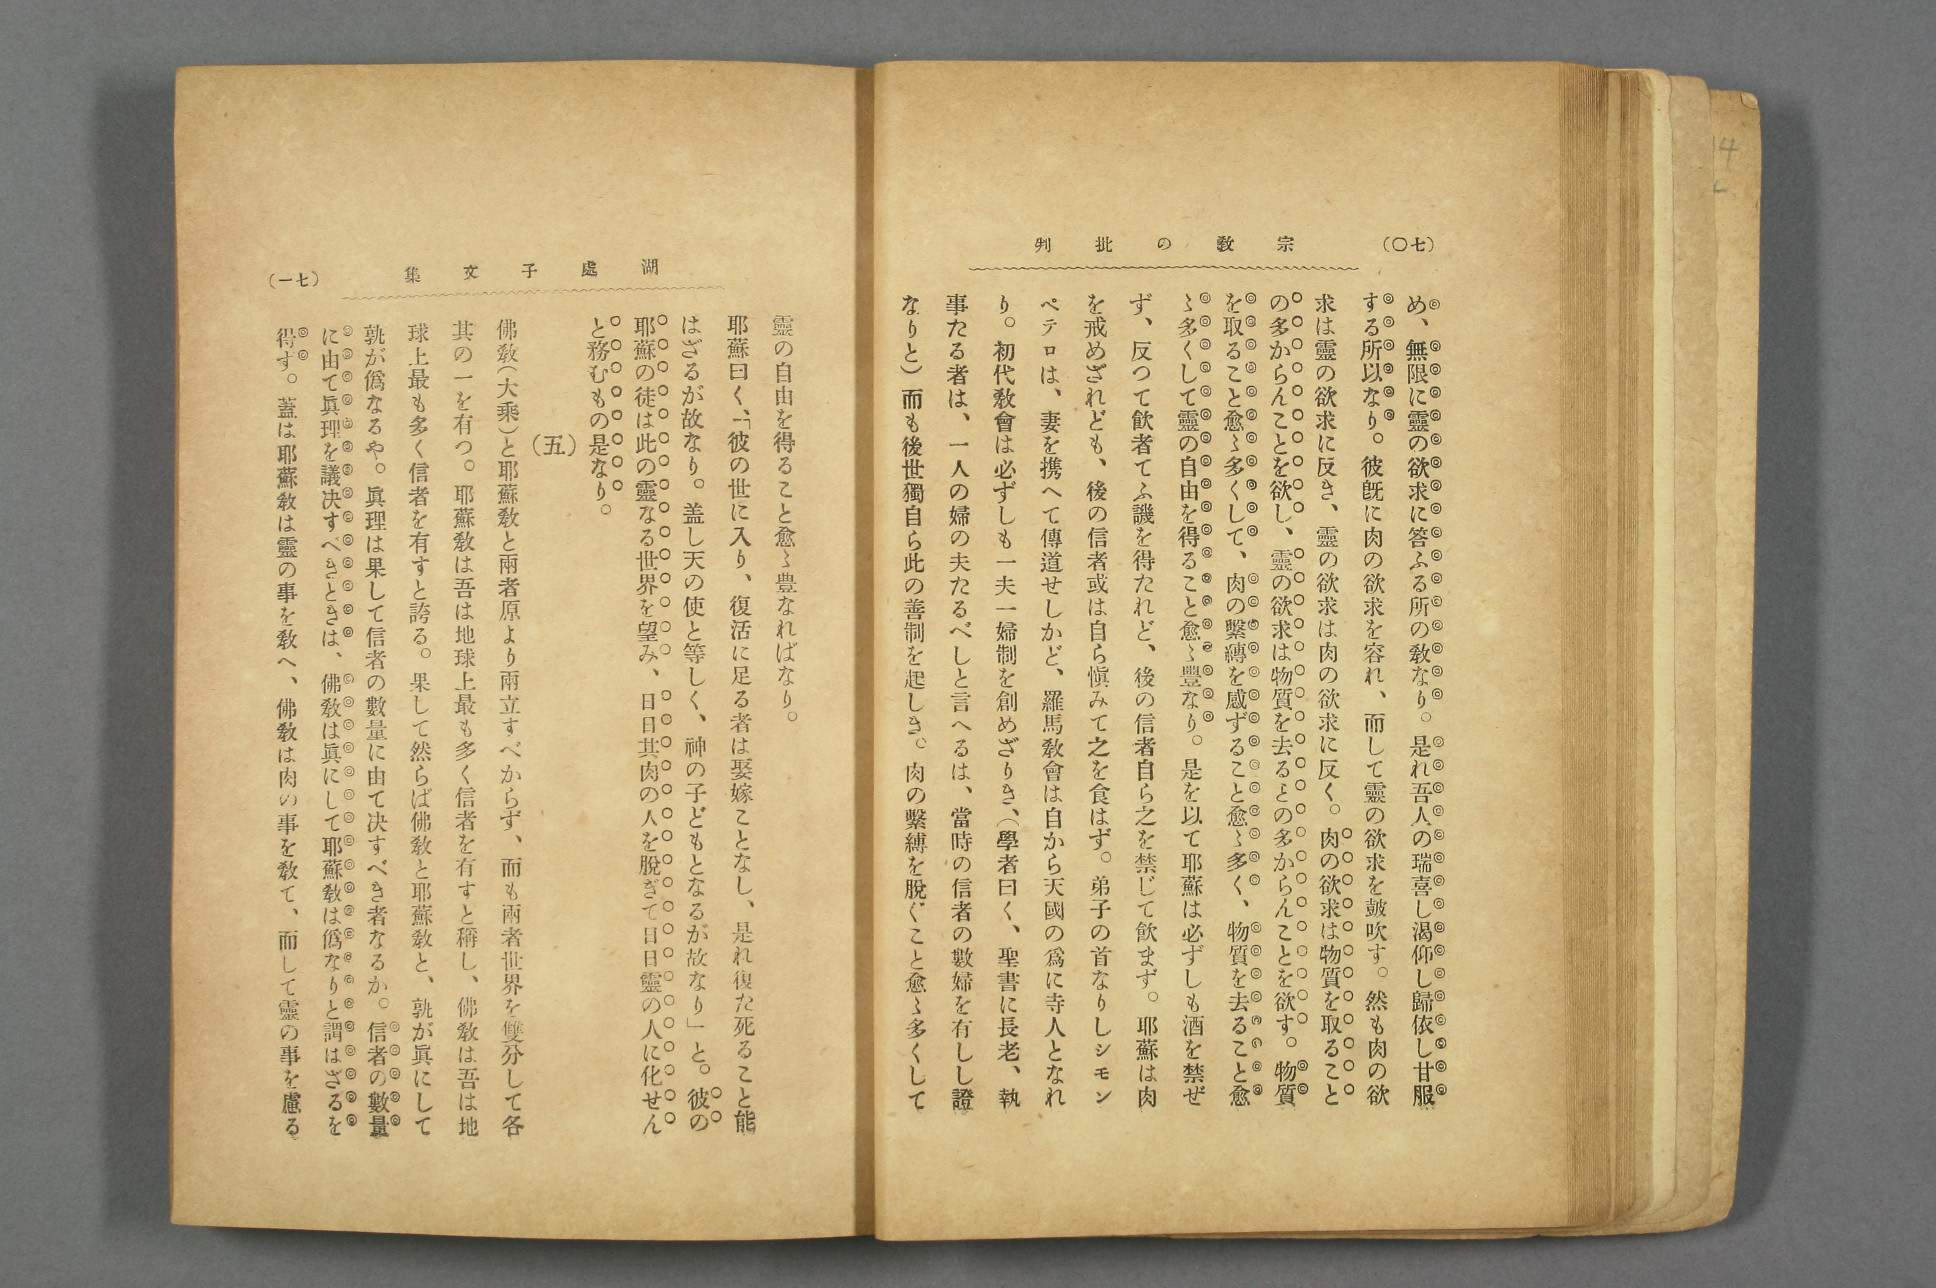 (七〇)
宗敎の批判
め、無限に靈の欲求に答ふる所の敎なり。是れ吾人の瑞喜し渴仰し歸依し甘服
する所以なり。彼旣に肉の欲求を容れ、而して靈の欲求を皷吹す。然も肉の欲
求は靈の欲求に反き、靈の欲求は肉の欲求に反く。肉の欲求は物質を取ること
の多からんことを欲し、靈の欲求は物質を去るとの多からんことを欲す。物質
を取ること愈〻多くして、肉の繫縛を感ずること愈〻多く、物質を去ること愈
〻多くして靈の自由を得ること愈〻豐なり。是を以て耶蘇は必ずしも酒を禁ぜ
ず、反つて飮者てふ譏を得たれど、後の信者自ら之を禁じて飮まず。耶蘇は肉
を戒めざれども、後の信者或は自ら愼みて之を食はず。弟子の首なりしシモン
ペテロは、妻を携へて傳道せしかど、羅馬敎會は自から天國の爲に寺人となれ
り。初代敎會は必ずしも一夫一婦制を創めざりき、（學者曰く、聖書に長老、執
事たる者は、一人の婦の夫たるべしと言へるは、當時の信者の數婦を有しし證
なりと）而も後世獨自ら此の善制を起しき。肉の繫縛を脫ぐこと愈〻多くして
湖處子文集
(七一)
靈の自由を得ること愈〻豐なればなり。
耶蘇曰く、「彼の世に入り、復活に足る者は娶嫁ことなし、是れ復た死ること能
はざるが故なり。盖し天の使と等しく、神の子どもとなるが故なり」と。彼の
耶蘇の徒は此の靈なる世界を望み、日日其肉の人を脫ぎて日日靈の人に化せん
と務むもの是なり。
（五）
佛敎（大乘）と耶蘇敎と兩者原より兩立すべからず、而も兩者世界を雙分して各
其の一を有つ。耶蘇敎は吾は地球上最も多く信者を有すと稱し、佛敎は吾は地
球上最も多く信者を有すと誇る。果して然らば佛敎と耶蘇敎と、孰が眞にして
孰が僞なるや。眞理は果して信者の數量に由て決すべき者なるか。信者の數量
に由て眞理を議決すべきときは、佛敎は眞にして耶蘇敎は僞なりと謂はざるを
得す。蓋は耶蘇敎は靈の事を敎へ、佛敎は肉の事を敎て、而して靈の事を慮る